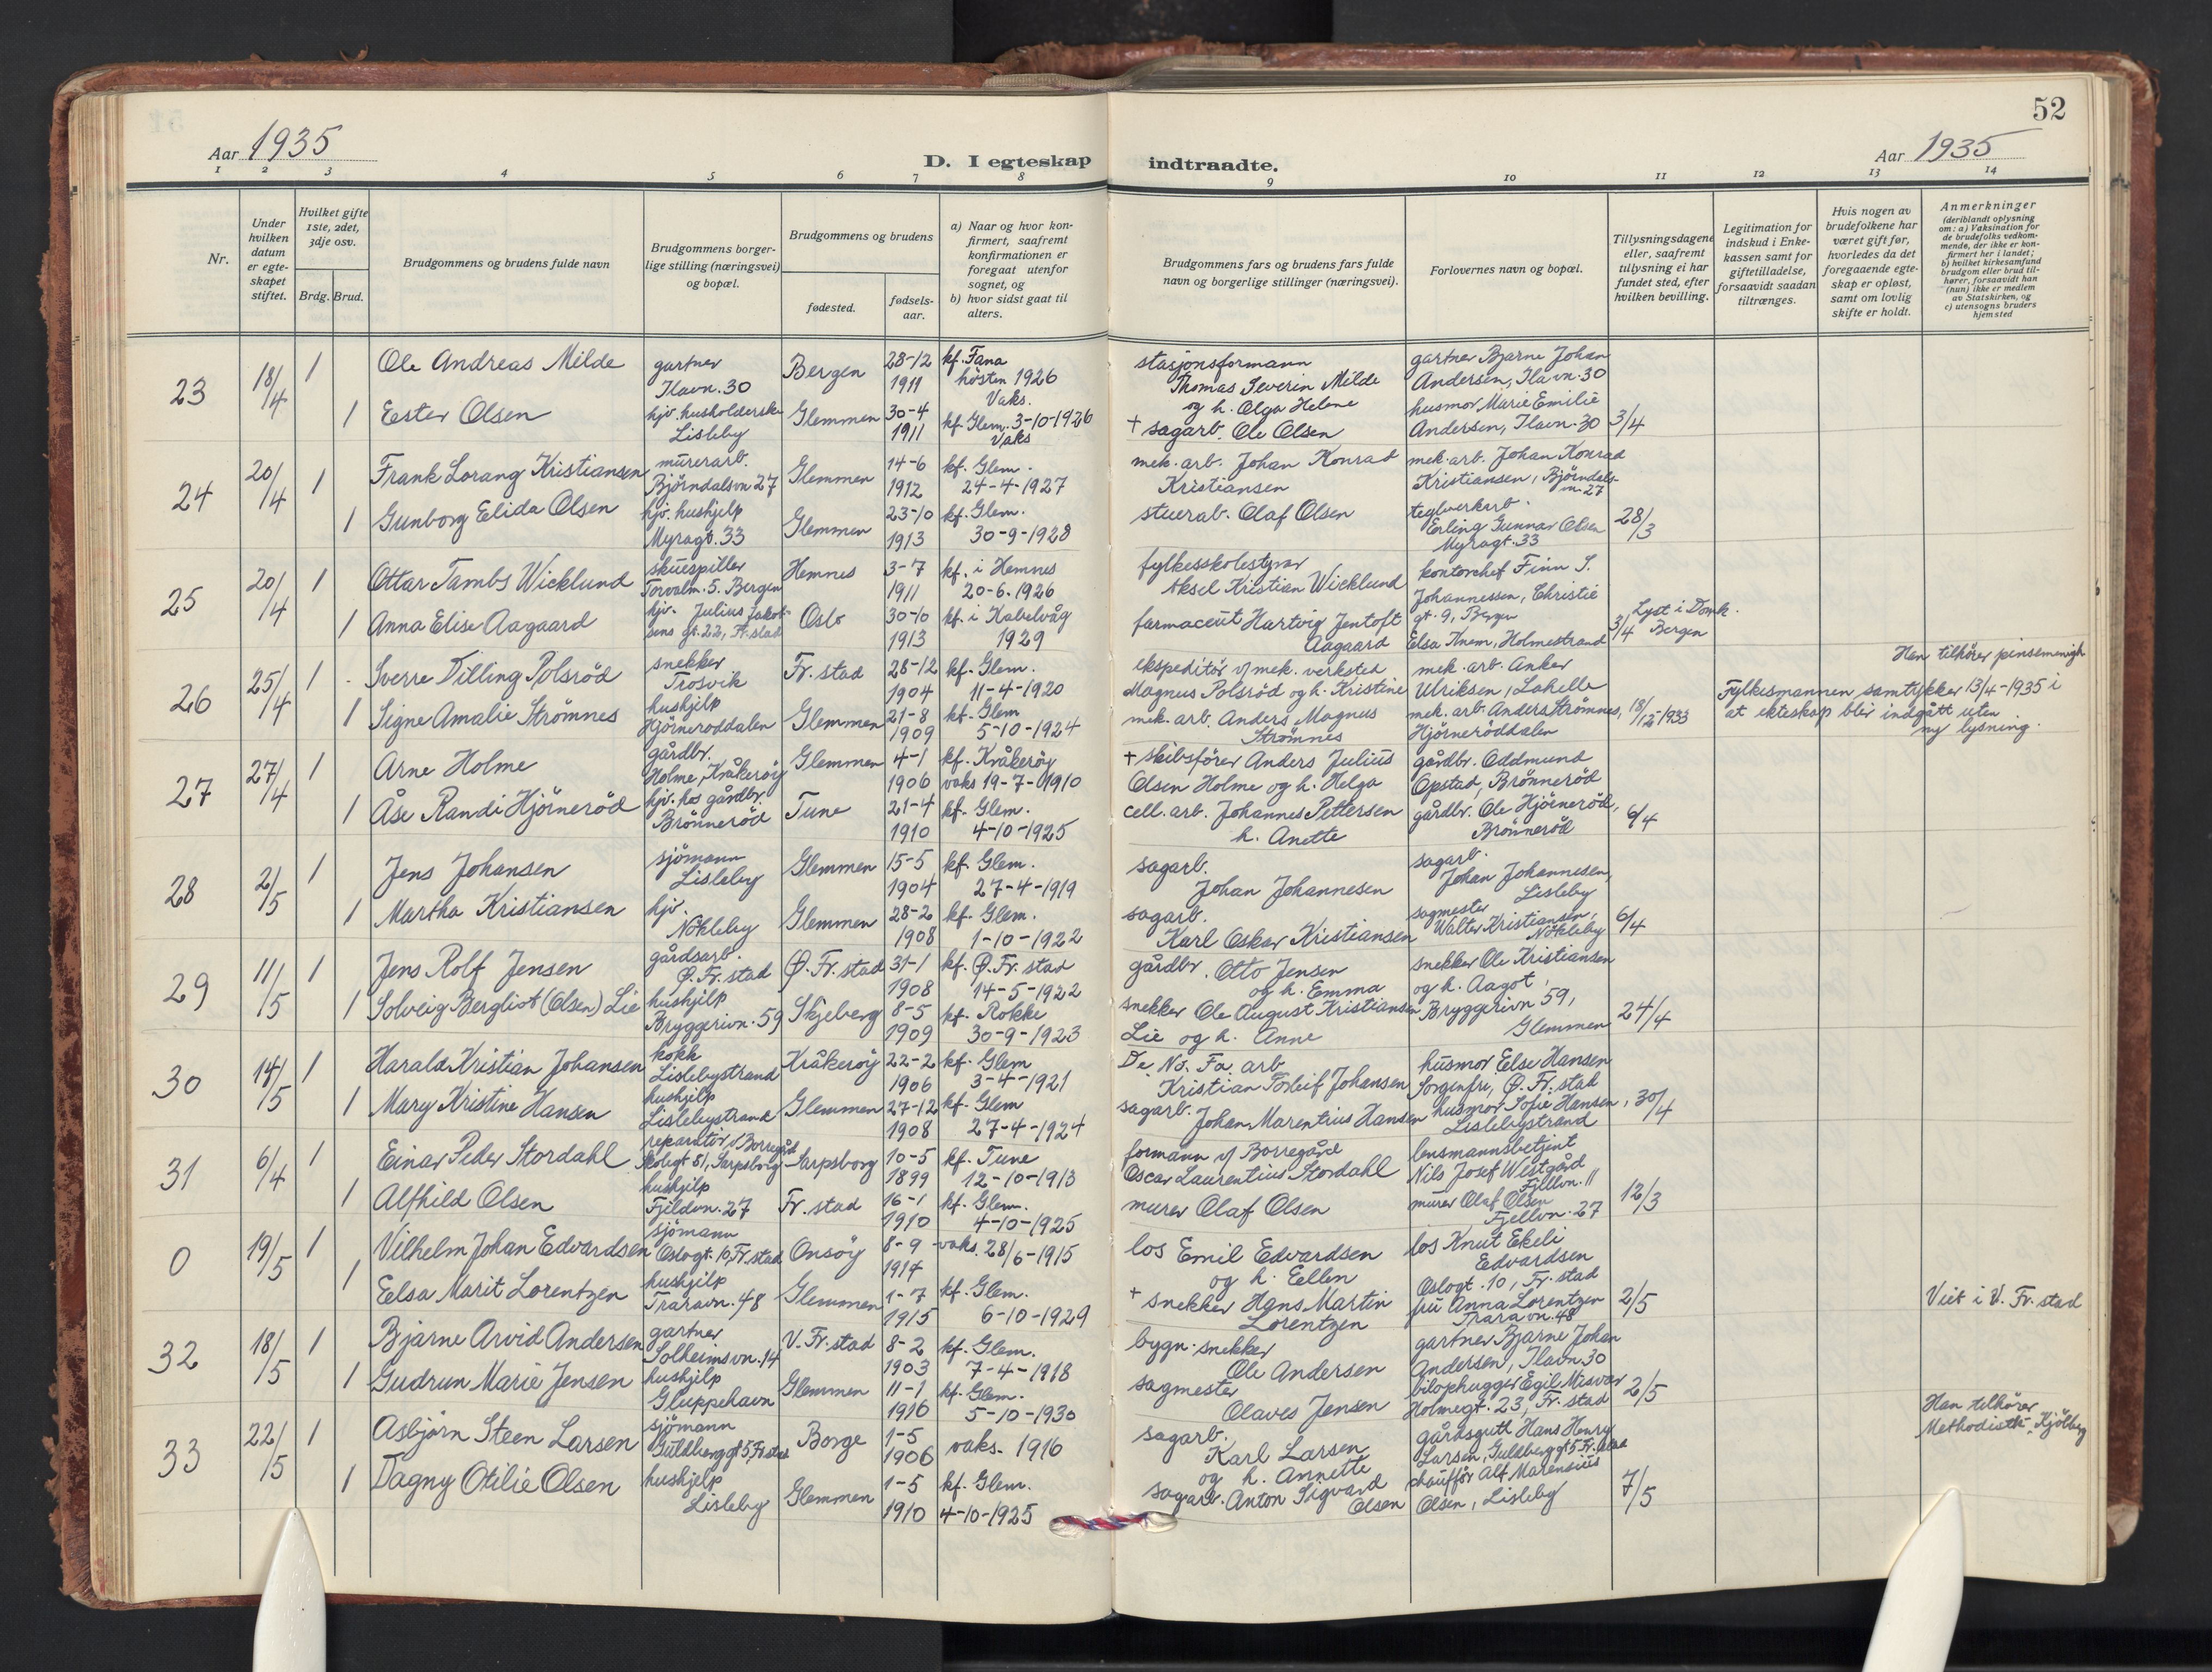 52
Aar 1935
D. I egteskap indtraadte.
Aar 1935
1 2 3 4 5 6 7 8 9 10 11 12 13 14
Nr.
Under hvilken datum er egte- skapet stiftet.
Hvilket gifte 1ste, 2det, 3dje osv.
Brdg. Brud.
Brudgommens og brudens fulde navn
Brudgommens borger- lige stilling (næringsvei) og bopæl.
Brudgommens og brudens
fødested.
fødsels- aar.
a) Naar og hvor kon- firmert, saafremt konfirmationen er foregaat utenfor sognet, og
b) hvor sidst gaat til alters.
Brudgommens fars og brudens fars fulde navn og borgerlige stillinger (næringsvei).
Forlovernes navn og bopæl.
Tillysningsdagene eller, saafremt tillysning ei har fundet sted, efter hvilken bevilling.
Legitimation for indskud i Enke- kassen samt for giftetilladelse, forsaavidt saadan tiltrænges.
Hvis nogen av brudefolkene har været gift før, hvorledes da det foregaaende egte- skap er opløst, samt om lovlig skifte er holdt.
Anmerkninger (deriblandt oplysning om: a) Vaksination for de brudefolks vedkom- mende, der ikke er kon- firmert her i landet; b) hvilket kirkesamfund brudgom eller brud til- hører, forsaavidt han (hun) ikke er medlem av Statskirken, og c) utensogns bruders hjemsted
23 18/4 1 Ole Andreas Milde gartner Ilavn. 30 Bergen 28-12 1911 kf. Fana hösten 1926 Vaks. stasjonsformann Thomas Severin Milde og h. Olga Helene gartner Bjarne Johan Andersen, Ilavn. 30
1 Ester Olsen hjv. husholderske Lisleby Glemmen 30-4 1911 kf. Glem. 3-10-1926 Vaks + sagarb. Ole Olsen husmor Marie Emilie Andersen, Ilavn. 30 3/4
24 20/4 1 Frank Lorang Kristiansen murerarb. Björndalsvn 27 Glemmen 14-6 1912 kf. Glem. 24-4-1927 mek. arb. Johan Konrad Kristiansen mek. arb. Johan Konrad Kristiansen, Björndals- vn. 27
1 Gunborg Elida Olsen hjv. hushjelp Myragt. 33 Glemmen 23-10 1913 kf. Glem. 30-9-1928 stuerab. Olaf Olsen teglverkarb. Erling Gunnar Olsen Myragt. 33 28/3
25 20/4 1 Ottar Tambs Wicklund skuespiller Torvalm. 5. Bergen Hemnes 3-7 1911 kf. i Hemnes 20-6-1926 fylkesskolestyrar Aksel Kristian Wicklund kontorchef Finn S. Johannessen, Christie gt. 9, Bergen
1 Anna Elise Aagaard hjv. Julius Jakob- sens gt. 22, Fr.stad Oslo 30-10 1913 kf. i Kabelvåg 1929 farmaceut Hartvig Jentoft Aagaard Elsa Knem, Holmestrand 3/4 Lyst i Domk. Bergen
26 25/4 1 Sverre Dilling Polsröd snekker Trosvik Fr. stad 28-12 1904 kf. Glem. 11-4-1920 ekspeditör v/ mek. verksted Magnus Polsröd og h. Kristine mek. arb. Anker Ulriksen, Lahelle Han tilhörer pinsemenigh
1 Signe Amalie Strömnes hushjelp Hjörneröddalen Glemmen 21-8 1909 kf. Glem 5-10-1924 mek. arb. Anders Magnus Strömnes mek. arb. Anders Strömnes, Hjörneröddalen 18/12-1933 Fylkesmannen samtykker 13/4-1935 i at ekteskap blir indgått uten ny lysning.
27 27/4 1 Arne Holme gårdbr. Holme, Kråkeröy Glemmen 4-1 1906 kf. Kråkeröy vaks 19-7-1910 + skibsförer Anders Julius Olsen Holme og h. Helga gårdbr. Oddmund Opstad, Brönneröd
1 Åse Randi Hjörneröd hjv. hos gårdbr. Brönneröd Tune 21-4 1910 kf. Glem. 4-10-1925 cell. arb. Johannes Pettersen h. Anette gårdbr. Ole Hjörneröd, Brönneröd 6/4
28 2/5 1 Jens Johansen sjömann Lisleby Glemmen 15-5 1904 kf. Glem. 27-4-1919 sagarb. Johan Johannesen sagarb. Johan Johannesen, Lisleby
1 Martha Kristiansen hjv. Nökleby Glemmen 28-2 1908 kf. Glem. 1-10-1922 sagarb. Karl Oskar Kristiansen sagmester Walter Kristiansen, Nökleby 6/4
29 11/5 1 Jens Rolf Jensen gårdsarb. Ø. Fr. stad Ø. Fr. stad 31-1 1908 kf. Ø. Fr. stad 14-5-1922 gårdbr. Otto Jensen og h. Emma snekker Ole Kristiansen og h. Aagot,
1 Solveig Bergliot (Olsen) Lie hushjelp Bryggerivn. 59 Skjeberg 8-5 1909 kf. Rokke 30-9-1923 snekker Ole August Kristiansen Lie og h. Anne Bryggerivn 59, Glemmen 24/4
30 14/5 1 Harald Kristian Johansen kokk Lislebystrand Kråkeröy 22-2 1906 kf. Glem 3-4-1921 De No. Fa. arb. Kristian Toleif Johansen husmor Else Hansen Sorgenfri, Ø. Fr. stad
1 Mary Kristine Hansen hushjelp Lislebystrand Glemmen 27-12 1908 kf. Glem 27-4-1924 sagarb. Johan Marentius Hansen husmor Sofie Hansen, Lislebystrand 30/4
31 6/4 1 Einar Peder Stordahl reparatör v/ Borregård Skolegt 81, Sarpsborg Sarpsborg 10-5 1899 kf. Tune 12-10-1913 formann v/ Borregård Oscar Laurentius Stordahl lensmannsbetjent Nils Josef Westgård Fjellvn. 11
1 Alfhild Olsen hushjelp Fjeldvn. 27 Fr. stad 16-1 1910 kf. Glem. 4-10-1925 murer Olaf Olsen murer Olaf Olsen Fjellvn. 27 12/3
0 19/5 1 Vilhelm Johan Edvardsen sjömann Oslogt. 10, Fr. stad Onsöy 8-9 1914 vaks. 28/6-1915 los Emil Edvardsen og h. Ellen los Knut Ekeli Edvardsen Oslogt. 10, Fr. stad
1 Elsa Marit Lorentzen hushjelp Traravn. 48 Glemmen 1-7 1915 kf. Glem. 6-10-1929 + snekker Hans Martin Lorentzen fru Anna Lorentzen Traravn. 48 2/5 Viet i V. Fr. stad
32 18/5 1 Bjarne Arvid Andersen gartner Solheimsvn. 14 V. Fr. stad 8-2 1903 kf. Glem. 7-4-1918 bygn. snekker Ole Andersen gartner Bjarne Johan Andersen, Ilavn 30
1 Gudrun Marie Jensen hushjelp Gluppehavn Glemmen 11-1 1916 kf. Glem. 5-10-1930 sagmester Olaves Jensen bilophugger Egil Misvær Holmegt. 23, Fr. stad 2/5
33 22/5 1 Asbjörn Steen Larsen sjömann Guldberggt 5, Fr.stad Borge 1-5 1906 vaks. 1916 sagarb. Karl Larsen og h. Annette gårdsgutt Hans Henry Larsen, Guldberggt 5 Fr. stad Han tilhörer Methodistk. Kjölberg
1 Dagny Otilie Olsen hushjelp Lisleby Glemmen 1-5 1910 kf. Glem. 4-10-1925 sagarb. Anton Sigvard Olsen chaufför Alf Marensius Olsen, Lisleby 7/5